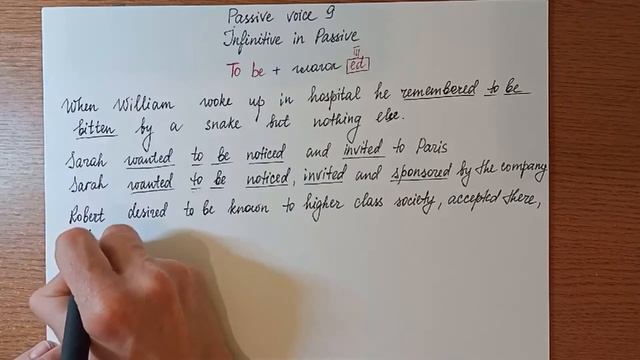 Passive voice 9
Infinitive in Passive
III
To be + глагол ed
When William woke up in hospital he remembered to be
bitten by a snake but nothing else.
Sarah wanted to be noticed and invited to Paris
Sarah wanted to be noticed, invited and sponsored by the company
Robert desired to be known to higher class society, accepted there,